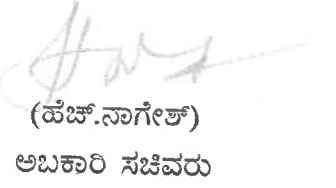 (ಹೆಚ್.ನಾಗೇಶ್)
ಅಬಕಾರಿ ಸಚಿವರು